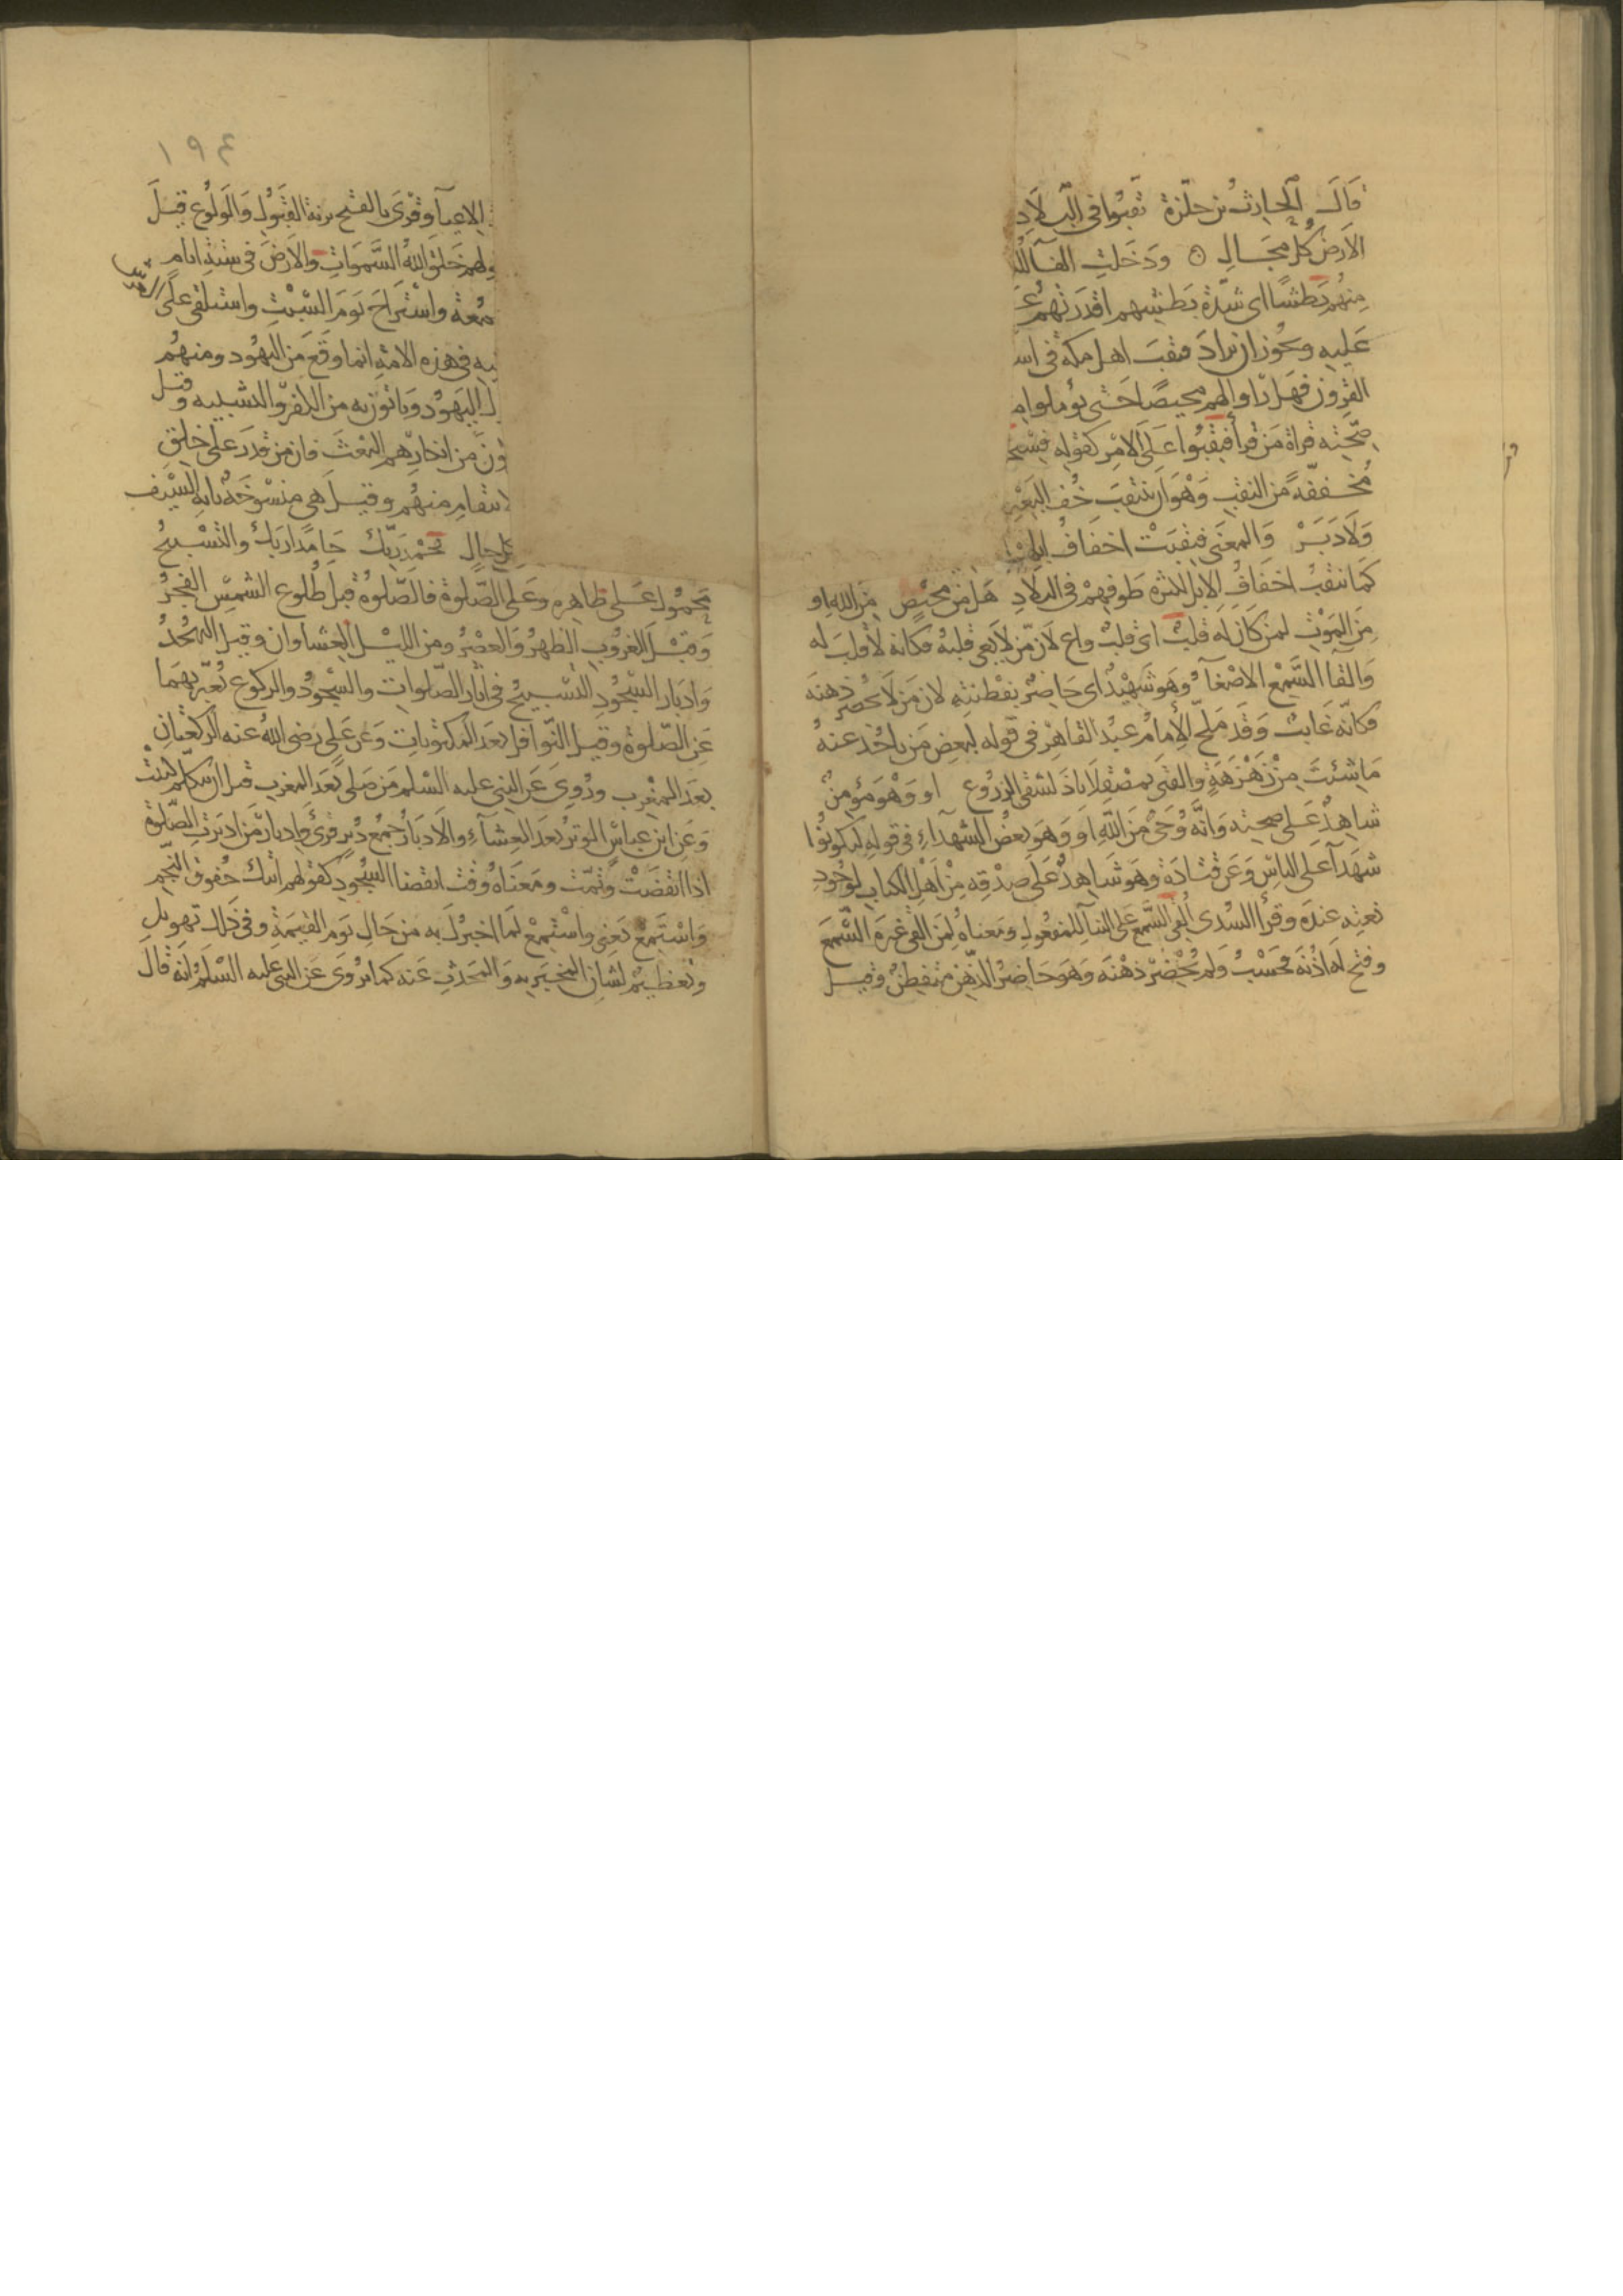 قَالَ الحَارِثُ بن حلّزة نَقَّبُوا في البِلَادِ
الارض كُلّ مجَالِ ⊙ ودَخَلت الفآ
مِنهُم بَطشًا اى شدّة بَطشِهم اقدَرَتهُم عَ
عَليهِ ويجُوز ان يرادَ فنقبَ اهل مكة فى اس
القرون فهَل رَاوا لهم محيصًا حَتى يؤملوا م
صِحّتِه قراة مَن قرأ فنقِّبُوا عَلى الامْرِ كقوله فسْيح
مُخففّةً من النقب وَهْوَ ان ينتقبَ خُف البَعْيِر
وَلَا دَبَرْ وَالمعَنى فنقبَتْ اخفَافُ ابلهم
كمَا نتقبُ اخفَافُ الابل لكثرة طَوفهمْ فى البلَادِ هَل مِنْ محيْصٍ مِنَ الله او
مِنَ المَوْتِ لمن كَان له قلبٌ اى قلبٌ واعٍ لَان مَن لَا يَعى قلبُه فكانه لَا قلبَ له
وَالقَا السَّمْع الاصْغَآءُ وَهوَ شَهِيْدٌ اى حَاضِرٌ بفطْنَتِه لان مَن لَا يُحضِر ذهنَه
فكانّه غَايبٌ وَقد مَلح الِامامُ عبْدُ القاهِر فى قوله لبعض مَن يَاخُذ عنهُ
مَا شِئتَ مِنْ زَهْزَهَةٍ وَالفتَى بمصْقِلَابَاذَ لسَقْى الزروع او وَهْوَ مؤمِنٌ
شاهِدٌ عَلى صحته وَانّه وُحىٌ مِنَ الله او وَهوَ بعضُ الشهدآءِ فى قوله لتكونُوا
شهَدآ عَلى الناسِ وَعَن قتادَة وَهوَ شَاهِدٌ عَلى صِدْقِه مِنْ اهَلِ الكتاب لوجُودِ
نعتِه عندَه وقرأ السُدى اُلقى السَّمع عَلى البنآ للمفعُول ومعناهُ لِمَن القى غيرَه السَّمعَ
وفتح لَه اذُنَه فحَسْبُ وَلم يُحْضِرْ ذهْنَه وَهوَ حَاضِرُ الذِّهنِ متَفطِنٌ وقيل
قر
١٩٤
الاعيآ وقرىَ بالفتح بزنة القَبُولِ وَالوَلُوعِ قيلَ
ولهم خَلق اللهُ السَّمَوَاتِ والارَض فى ستةِ ايامٍ
معة واسْتَراحَ يَومَ السَّبْتِ واستلقى عَلى العرش
ـيه فى هذه الامة انما وقعَ مَن اليهُود ومنهُم
ل اليَهوُد وَيَاتون به من الكفر والتشبيه وقيل
وُنَ من انكارِهم البعْثَ فان من قدَرَ على خلق
لانتقام منهُم وقيل هى منسْوخةٌ بايةِ السَّيْف
كل حالٍ بحَمْد رَبّك حَامدًا رَبكَ والتسْبيحُ
محَمُول عَلى ظاهِره وعَلى الصّلوة فالصّلوةُ قبل طُلوع الشمسِ الفجرُ
وَقبْلَ الغرُوبِ الظهرُ وَالعصْرُ ومن الليْل العِشاوان وقيل التهجُدُ
وَادَبار السّجُودِ التسْبيحُ فى اثار الصّلوات والسّجُودُ والركوع يُعبّرُ بهَما
عَن الصّلوة وقيل النوافل بعدَ المكتوبات وَعَن عَلى رَضى اللهُ عنه الركعتان
بعدَ المغِرب ورُوىَ عَن النبى عليه السّلم مَن صَلى بَعدَ المغرب قبل ان يتكلم كتبتْ
وَعَن ابن عباسٍ الوترُ بعدَ العِشآءِ والادَبارُ جَمعُ دُبُرٍ وقرئَ وادبارَ مَن ادبَرَت الصّلوة
اذا انقضَتْ وتمّت ومَعنَاهُ وقت انقضا السُجُودِ كقولهم اتيك خُفوقَ النجْم
وَاسْتمعْ يَعنى واسْتمعْ لمَا اخبرُكَ به من حَالِ يَومِ القيمَةِ وفى ذلك تهويل
وتعظيْم لشان المخبَرِ به وَالمحَدثِ عَنه كما يرُوى عَن النبى عليه السّلم انّه قال